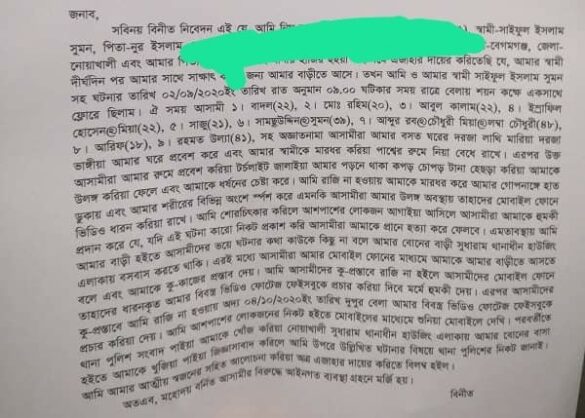 জনাব,
সবিনয় বিনীত নিবেদন এই যে, আমি স্বামী-সাইফুল ইসলাম
সুমন, পিতা-নুর ইসলাম -বেগমগঞ্জ, জেলা-
নোয়াখালী এবং আমার হাজির হইয়া এজাহার দায়ের করিতেছি যে, আমার স্বামী
দীর্ঘদিন পর আমার সাথে সাক্ষাৎ জন্য আমার বাড়ীতে আসে। তখন আমি ও আমার স্বামী সাইফুল ইসলাম সুমন
সহ ঘটনার তারিখ ০২/০৯/২০২০ইং তারিখ রাত অনুমান ০৯.০০ ঘটিকার সময় রাত্রে বেলায় শয়ন কক্ষে একসাথে
ফ্লোরে ছিলাম। ঐ সময় আসামী ১। বাদল(২২), ২। মোঃ রহিম(২০), ৩। আবুল কালাম(২২), ৪। ইস্রাফিল
হোসেন@মিয়া(২২), ৫। সাজু(২১), ৬। সামছুউদ্দিন@সুমন(৩৯), ৭। আব্দুর রব@চৌধুরী মিয়া@লম্বা চৌধুরী(৪৮),
৮। আরিফ(১৮), ৯। রহমত উল্যা(৪১), সহ অজ্ঞাতনামা আসামীরা আমার বসত ঘরের দরজা লাথি মারিয়া দরজা
ভাঙ্গীয়া আমার ঘরে প্রবেশ করে এবং আমার স্বামীকে মারধর করিয়া পাশের রুমে নিয়া বেধে রাখে। এরপর উক্ত
আসামীরা আমার রুমে প্রবেশ করিয়া টর্চলাইট জালাইয়া আমার পড়নে থাকা কপড় চোপড় টানা হেছড়া করিয়া আমাকে
উলঙ্গ করিয়া ফেলে এবং আমাকে ধর্ষনের চেষ্টা করে। আমি রাজি না হওয়ায় আমাকে মারধর করে আমার গোপনাঙ্গে হাত
ঢুকায় এবং আমার শরীরের বিভিন্ন অংশে স্পর্শ করে এমনকি আসামীরা আমার উলঙ্গ অবস্থায় তাহাদের মোবাইল ফোনে
ভিডিও ধারন করিয়া রাখে। আমি শোরচিৎকার করিলে আশপাশের লোকজন আগাইয়া আসিলে আসামীরা আমাকে হুমকী
প্রদান করে যে, যদি এই ঘটনা কারো নিকট প্রকাশ করি আসামীরা আমাকে প্রানে হত্যা করে ফেলবে। এমতাবস্থায় আমি
আমার বাড়ী হইতে আসামীদের ভয়ে ঘটনার কথা কাউকে কিছু না বলে আমার বোনের বাড়ী সুধারাম থানাধীন হাউজিং
এলাকায় বসবাস করতে থাকি। এরই মধ্যে আসামীরা আমার মোবাইল ফোনের মাধ্যমে আমাকে আমার বাড়ীতে আসতে
বলে এবং আমাকে কু-কাজের প্রস্তাব দেয়। আমি আসামীদের কু-প্রস্তাবে রাজি না হইলে আসামীদের মোবাইল ফোনে
তাহাদের ধারনকৃত আমার বিবস্ত্র ভিডিও ফোটেজ ফেইসবুকে প্রচার করিয়া দিবে মর্মে হুমকী দেয়। এরপর আসামীদের
কু-প্রস্তাবে আমি রাজি না হওয়ায় অদ্য ০৪/১০/২০২০ইং তারিখ দুপুর বেলা আমার বিবস্ত্র ভিডিও ফোটেজ ফেইসবুকে
প্রচার করিয়া দেয়। আমি আশপাশের লোকজনের নিকট হইতে মোবাইলের মাধ্যমে শুনিয়া মোবাইলে দেখি। পরবর্তীতে
থানা পুলিশ সংবাদ পাইয়া আমাকে খোঁজ করিয়া নোয়াখালী সুধারাম থানাধীন হাউজিং এলাকায় আমার বোনের বাসা
হইতে আমাকে খুজিয়া পাইয়া জিজ্ঞাসাবাদ করিলে আমি উপরে উল্লেখিত ঘটনার বিষয়ে থানা পুলিশের নিকট জানাই।
আমি আমার আত্মীয় স্বজনের সহিত আলোচনা করিয়া অত্র এজাহার দায়ের করিতে বিলম্ব হইল।
অতএব, মহোদয় বর্নিত আসামীর বিরুদ্ধে আইনগত ব্যবস্থা গ্রহনে মর্জি হয়।
বিনীত